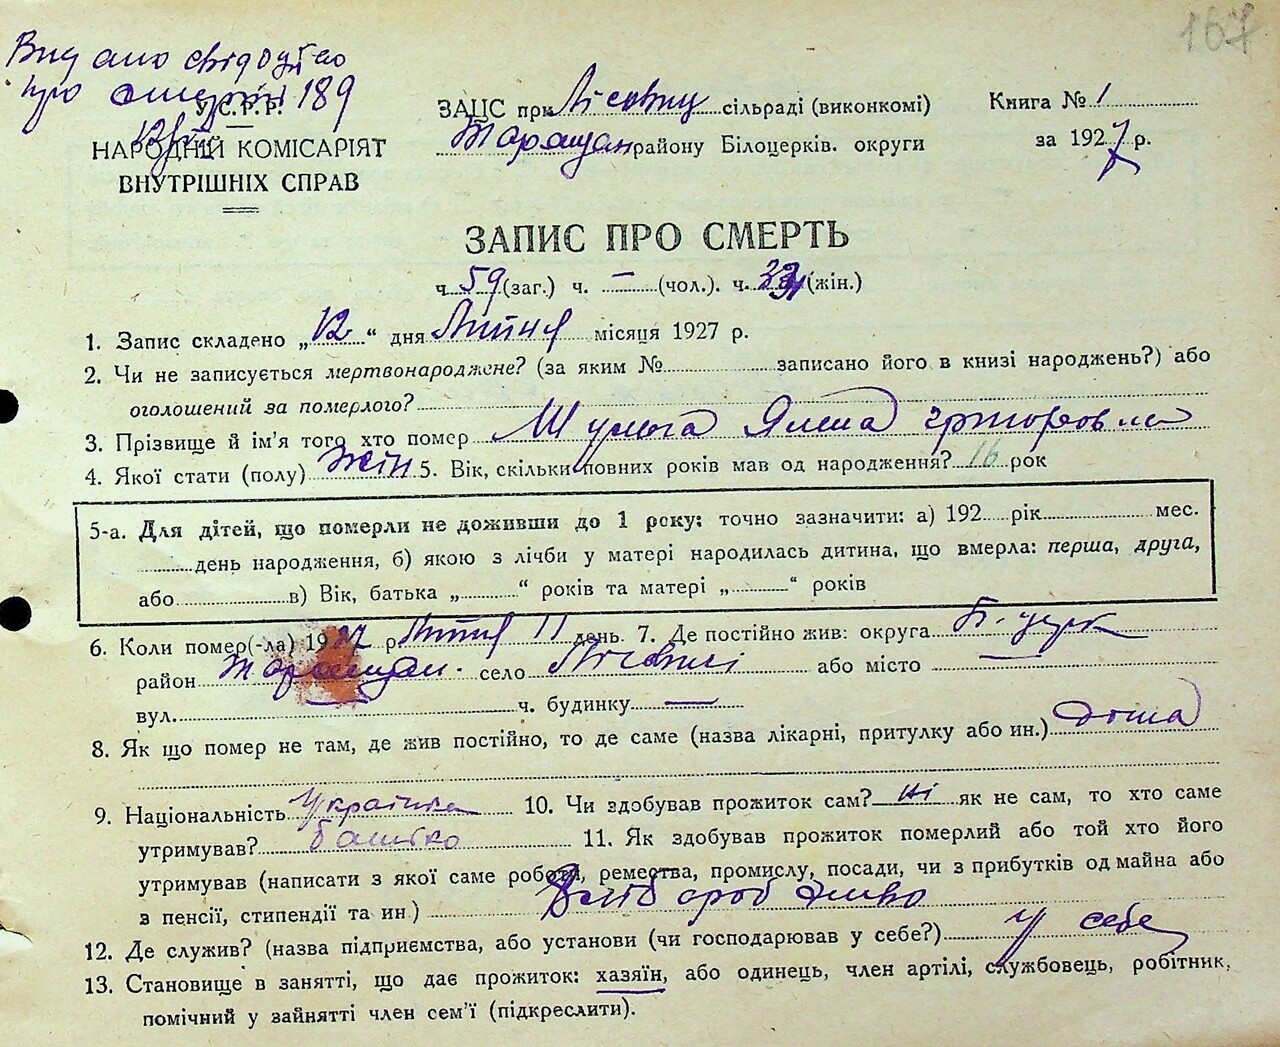 167
Видано свідоцтво
про смерть 189
У.С.Р.Р.
НАРОДНІЙ КОМІСАРІЯТ
ВНУТРІШНІХ СПРАВ
ЗАЦС при Лісович сільраді (виконкомі)
Таращан району Білоцерків. округи
Книга № 1
за 1927 р.
ЗАПИС ПРО СМЕРТЬ
ч. 59 (заг.) ч. — (чол.). ч. (жін.)
1. Запис складено „12“ дня Липня місяця 1927 р.
2. Чи не записується мертвонароджене? (за яким № записано його в книзі народжень?) або
оголошений за померлого?
3. Прізвище й ім'я того хто помер Шульга
4. Якої стати (полу) Жін 5. Вік, скільки повних років мав од народження? 16 рок
5-а. Для дітей, що померли не доживши до 1 року: точно зазначити: а) 192 рік мес.
день народження, б) якою з лічби у матері народилась дитина, що вмерла: перша, друга,
або в) Вік, батька „ “ років та матері „ “ років
6. Коли помер(-ла) 1927 р Липня 11 день. 7. Де постійно жив: округа Б-церк
район Таращан. село Лісовичі або місто —
вул. — ч. будинку —
8. Як що помер не там, де жив постійно, то де саме (назва лікарні, притулку або ин.) дома
9. Національність Українка 10. Чи здобував прожиток сам? ні як не сам, то хто саме
утримував? батько 11. Як здобував прожиток померлий або той хто його
утримував (написати з якої саме роботи, ремества, промислу, посади, чи з прибутків од майна або
з пенсії, стипендії та ин.) Хліборобство
12. Де служив? (назва підприємства, або установи (чи господарював у себе?) у себе
13. Становище в занятті, що дає прожиток: хазяїн, або одинець, член артілі, службовець, робітник,
помічний у зайнятті член сем'ї (підкреслити).